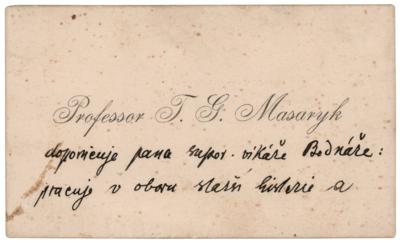 Professor T. G. Masaryk
doporučuje pana supor. vikáře Bednáře:
pracuje v oboru starší historie a